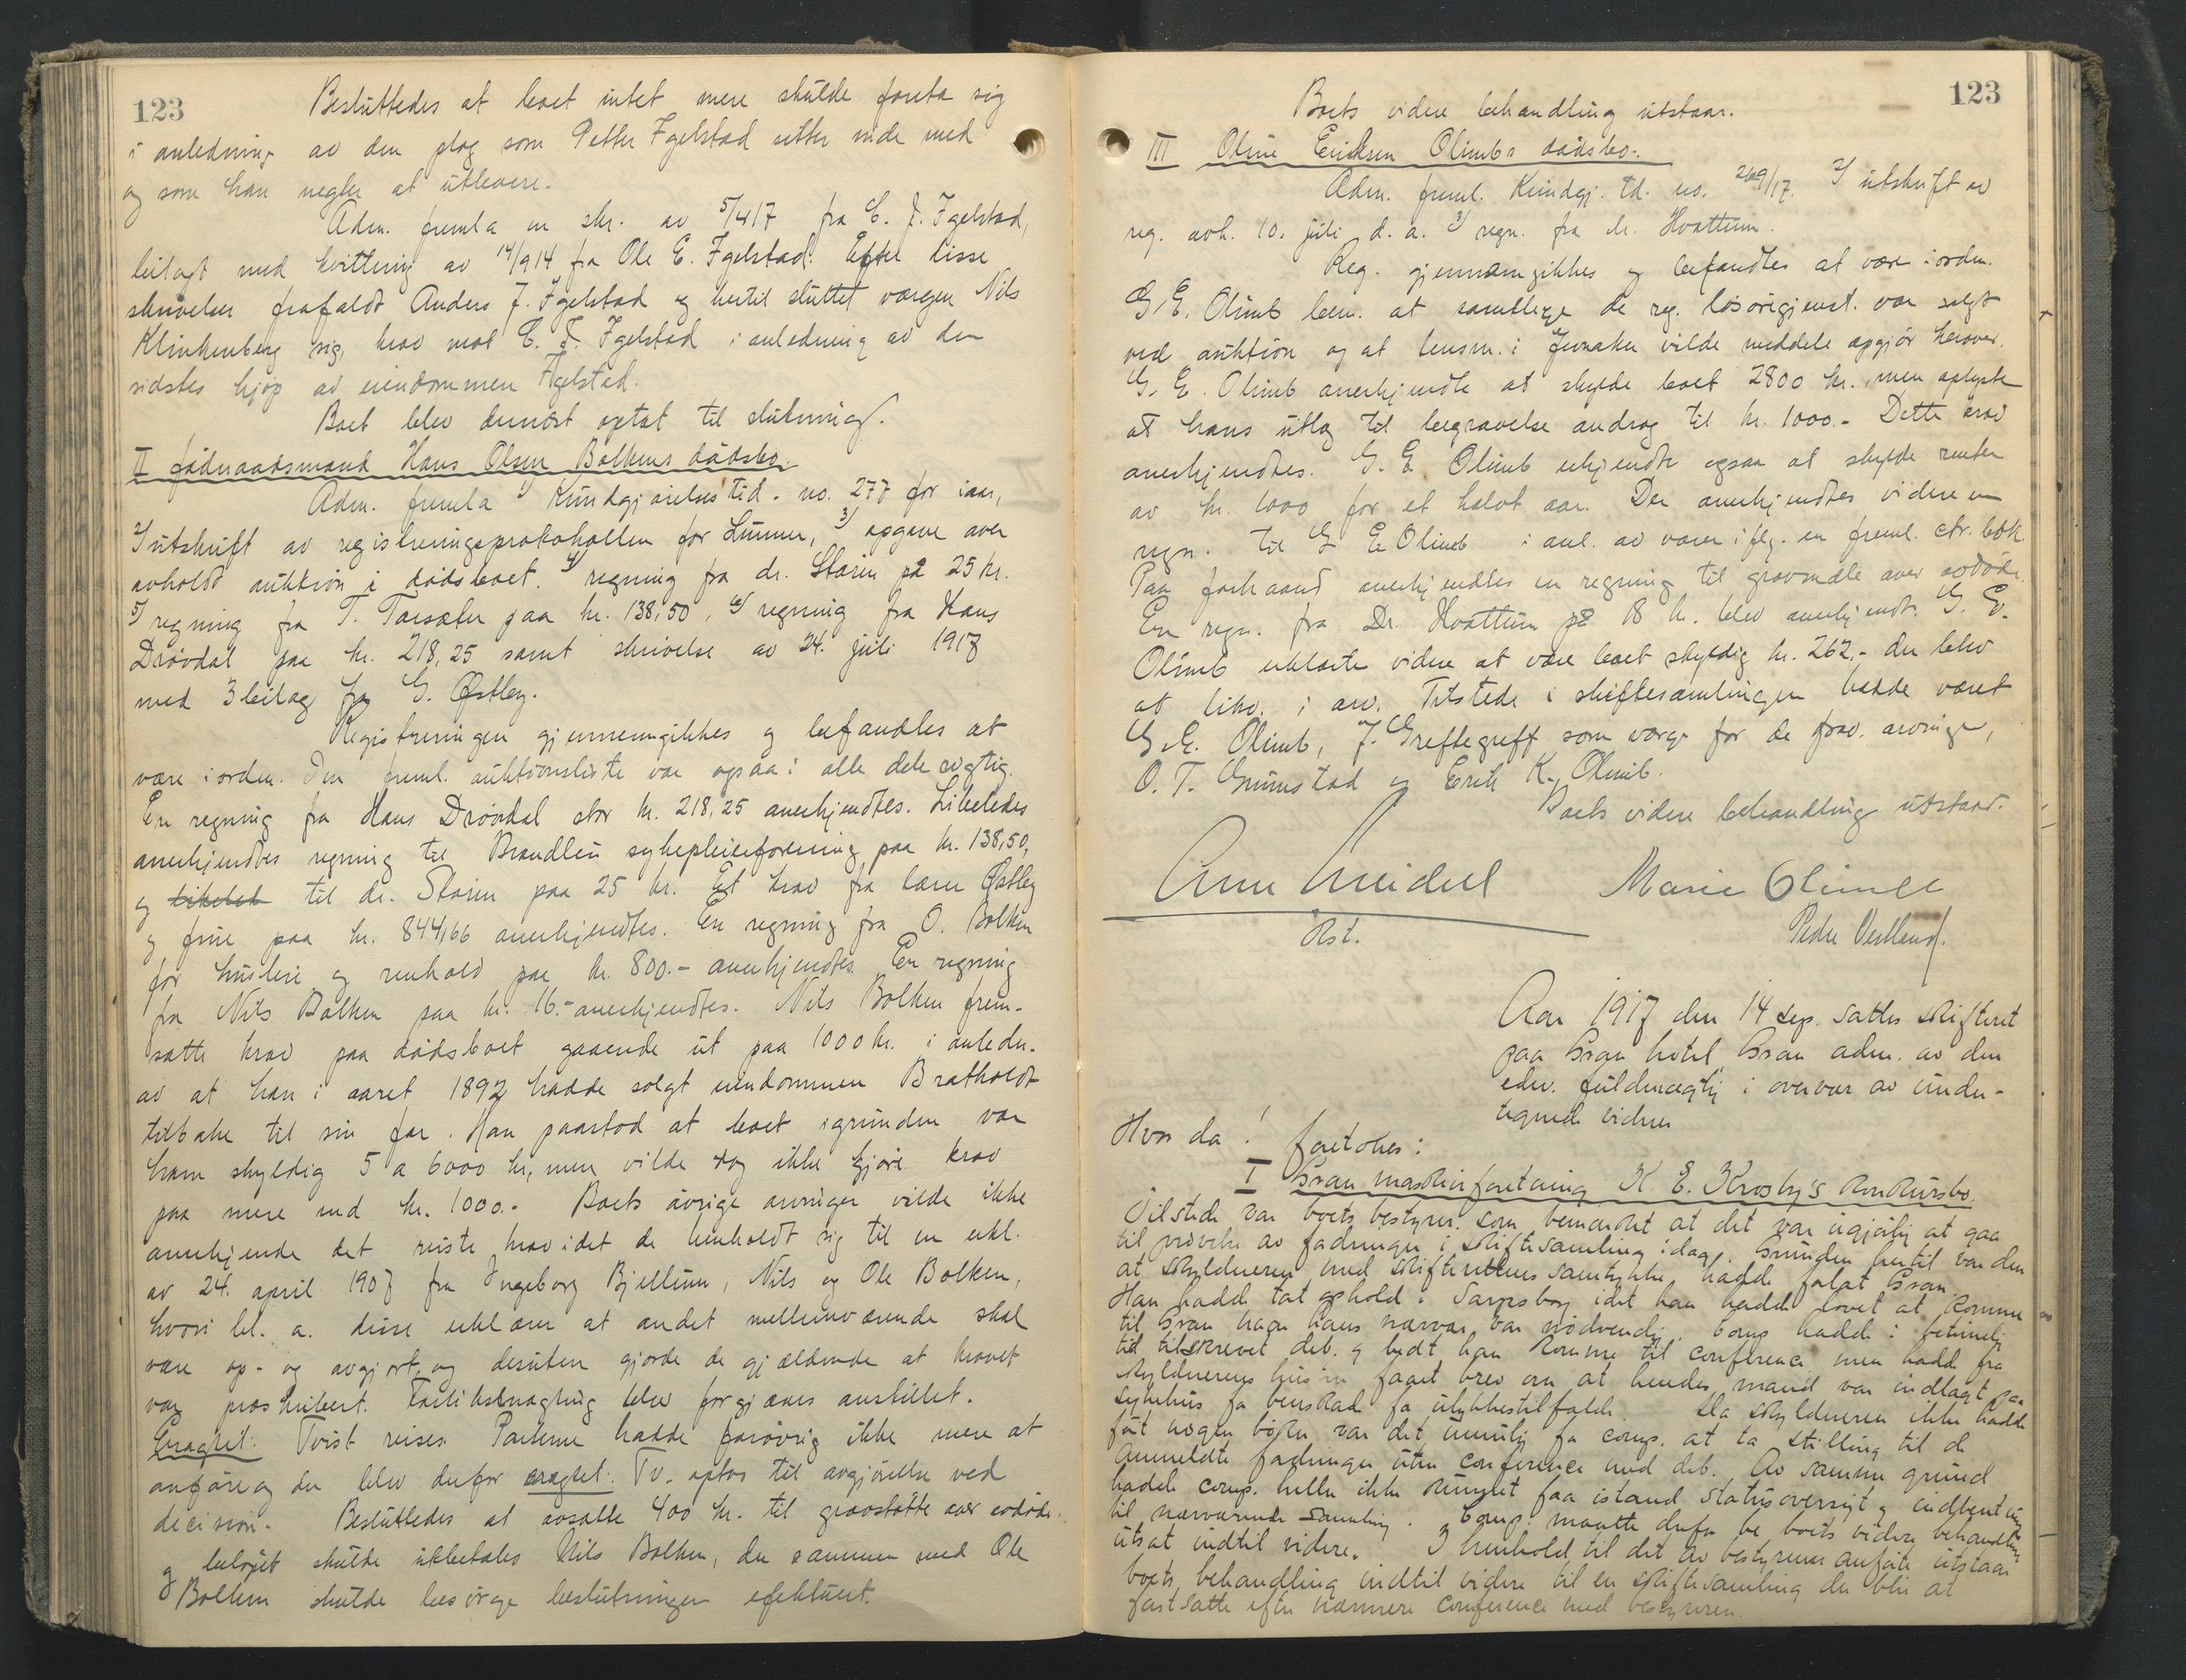 123
Besluttedes at boet intet mere skulde foreta sig
i anledning av den plog som Petter Igelstad sitter inde med
og som han negter at utlevere.
Adm. fremla en skr. av 5/4 17 fra C. J. Igelstad,
bilagt med kvittering av 14/9 14 fra Ole E. Igelstad. Efter disse
skrivelser frafaldt Anders J. Igelstad og hertil sluttet værgen Nils
Klinkenberg sig, krav mot C. J. Igelstad i anledning av den
sidstes kjøp av eiendommen Igelstad.
Boet blev dernæst optat til slutning.
II fådraadsmand Hans Olsen Bolkens dødsbo.
Adm. fremla 1/ Kundgjørelsestid. no. 277 for iaar,
2/ utskrift av registreringsprotokollen for Lunner, 3/ opgave over
avholdt auktion i dødsboet. 4/ regning fra dr. Støren på 25 kr.
5/ regning fra T. Torsæter paa kr. 138,50, 6/ regning fra Hans
Drøvdal paa kr. 218,25 samt skrivelse av 24. juli 1917
med 3 bilag fra G. Østby.
Registreringen gjennemgikkes og befandtes at
være i orden. Den freml. auktionsliste var ogsaa i alle dele rigtig.
En regning fra Hans Drøvdal stor kr. 218,25 anerkjendtes. Likeledes
anerkjendtes regning til Brandbu sykepleieforening paa kr. 138,50,
og til dr. Støren paa 25 kr. Et krav fra lærer Østby
og frue paa kr. 844,66 anerkjendtes. En regning fra O. Bolken
for husleie og renhold paa kr. 800.- anerkjendtes. En regning
fra Nils Bolken paa kr. 16.- anerkjendtes. Nils Bolken frem-
satte krav paa dødsboet gaaende ut paa 1000 kr. i anledn.
av at han i aaret 1892 hadde solgt eiendommen Bratholdt
tilbake til sin far. Han paastod at boet igrunden var
ham skyldig 5 a 6000 kr, men vilde dog ikke gjøre krav
paa mere end kr. 1000.- Boets øvrige arvinger vilde ikke
anerkjende det reiste krav idet de henholdt sig til en erkl.
av 24. april 1907 fra Ingeborg Bjellum, Nils og Ole Bolken,
hvori bl. a. disse erklærer at andet mellemværende skal
være op- og avgjort, og desuten gjorde de gjældende at kravet
var præskribert. Forliksmægling blev forgjæves anstillet.
Eragtet: Tvist reises. Parterne hadde forøvrig ikke mere at
anføre og der blev derfor eragtet: Tv. optas til avgjørelse ved
decision. Besluttedes at avsætte 400 kr. til gravstøtte over avdøde
og beløpet skulde utbetales Nils Bolken, der sammen med Ole
Bolken skulde besørge beslutningen efektuert.
123
Boets videre behandling utstaar.
III Oline Eriksen Olimbs dødsbo.
Adm. freml. Kundgj. td. no. 269/17. 2/ utskrift av
reg. avh. 10. juli d. a. 3/ regn. fra dr. Hvattum.
Reg. gjennemgikkes og befandtes at være i orden.
G. E. Olimb bem. at samtlige de reg. løsøregjenst. var solgt
ved auktion og at lensm. i Jevnaker vilde meddele opgjør herover.
G. E. Olimb anerkjendte at skylde boet 2800 kr., men oplyste
at hans utlæg til begravelse androg til kr. 1000.- Dette krav
anerkjendtes. G. E. Olimb erkjendte ogsaa at skylde renter
av kr. 1000 for et halvt aar. Der anerkjendtes videre en
regn. til G. E. Olimb i anl. av varer iflg. en freml. ctr. bok.
Paa forhaand anerkjendtes en regning til gravmæle over avdøde.
En regn. fra Dr. Hvattum på 18 kr. blev anerkjendt. G. E.
Olimb erklærte videre at være boet skyldig kr. 262,- der blev
at likv. i arv. Tilstede i skiftesamlingen hadde været
G. E. Olimb, J. Greftegreff som værge for de frav. arvinger,
O. T. Grumstad og Erik K. Olimb.
Boets videre behandling utstaar.
Marie Olimb
Kst.
Aar 1917 den 14 sep. sattes skifteret
paa Gran hotel, Gran adm. av den
edsv. fuldmægtig i overvær av under-
tegnede vidner
Hvor da!
foretokes:
I Gran maskinforretning K. E. Krosby's konkursbo.
Tilstede var boets bestyrer, som bemærket at det var ugjørlig at gaa
til prøvelse av fordringer i skiftesamling idag. Grunden hertil var den
at skyldneren med skifterettens samtykke hadde forlat Gran.
Han hadde tat ophold i Sarpsborg idet han hadde lovet at komme
til Gran naar hans nærvær var nødvendig. Comp. hadde i betimelig
tid tilskrevet deb. og bedt ham komme til conference, men hadde fra
skyldnerens hustru faaet brev om at hendes mand var indlagt paa
sykehus for benskade fra ulykkestilfælde. Da skyldneren ikke hadde
ført nogen bøker var det umulig for comp. at ta stilling til de
anmeldte fordringer uten conference med deb. Av samme grund
hadde comp. heller ikke kunnet faa istand statusoversigt og indberetning
til nærværende samling. Comp. maatte derfor be boets videre behandling
utsat indtil videre. I henhold til det av bestyreren anførte utstaar
boets behandling indtil videre til en skiftesamling der blir at
fastsætte efter nærmere conference med bestyreren.